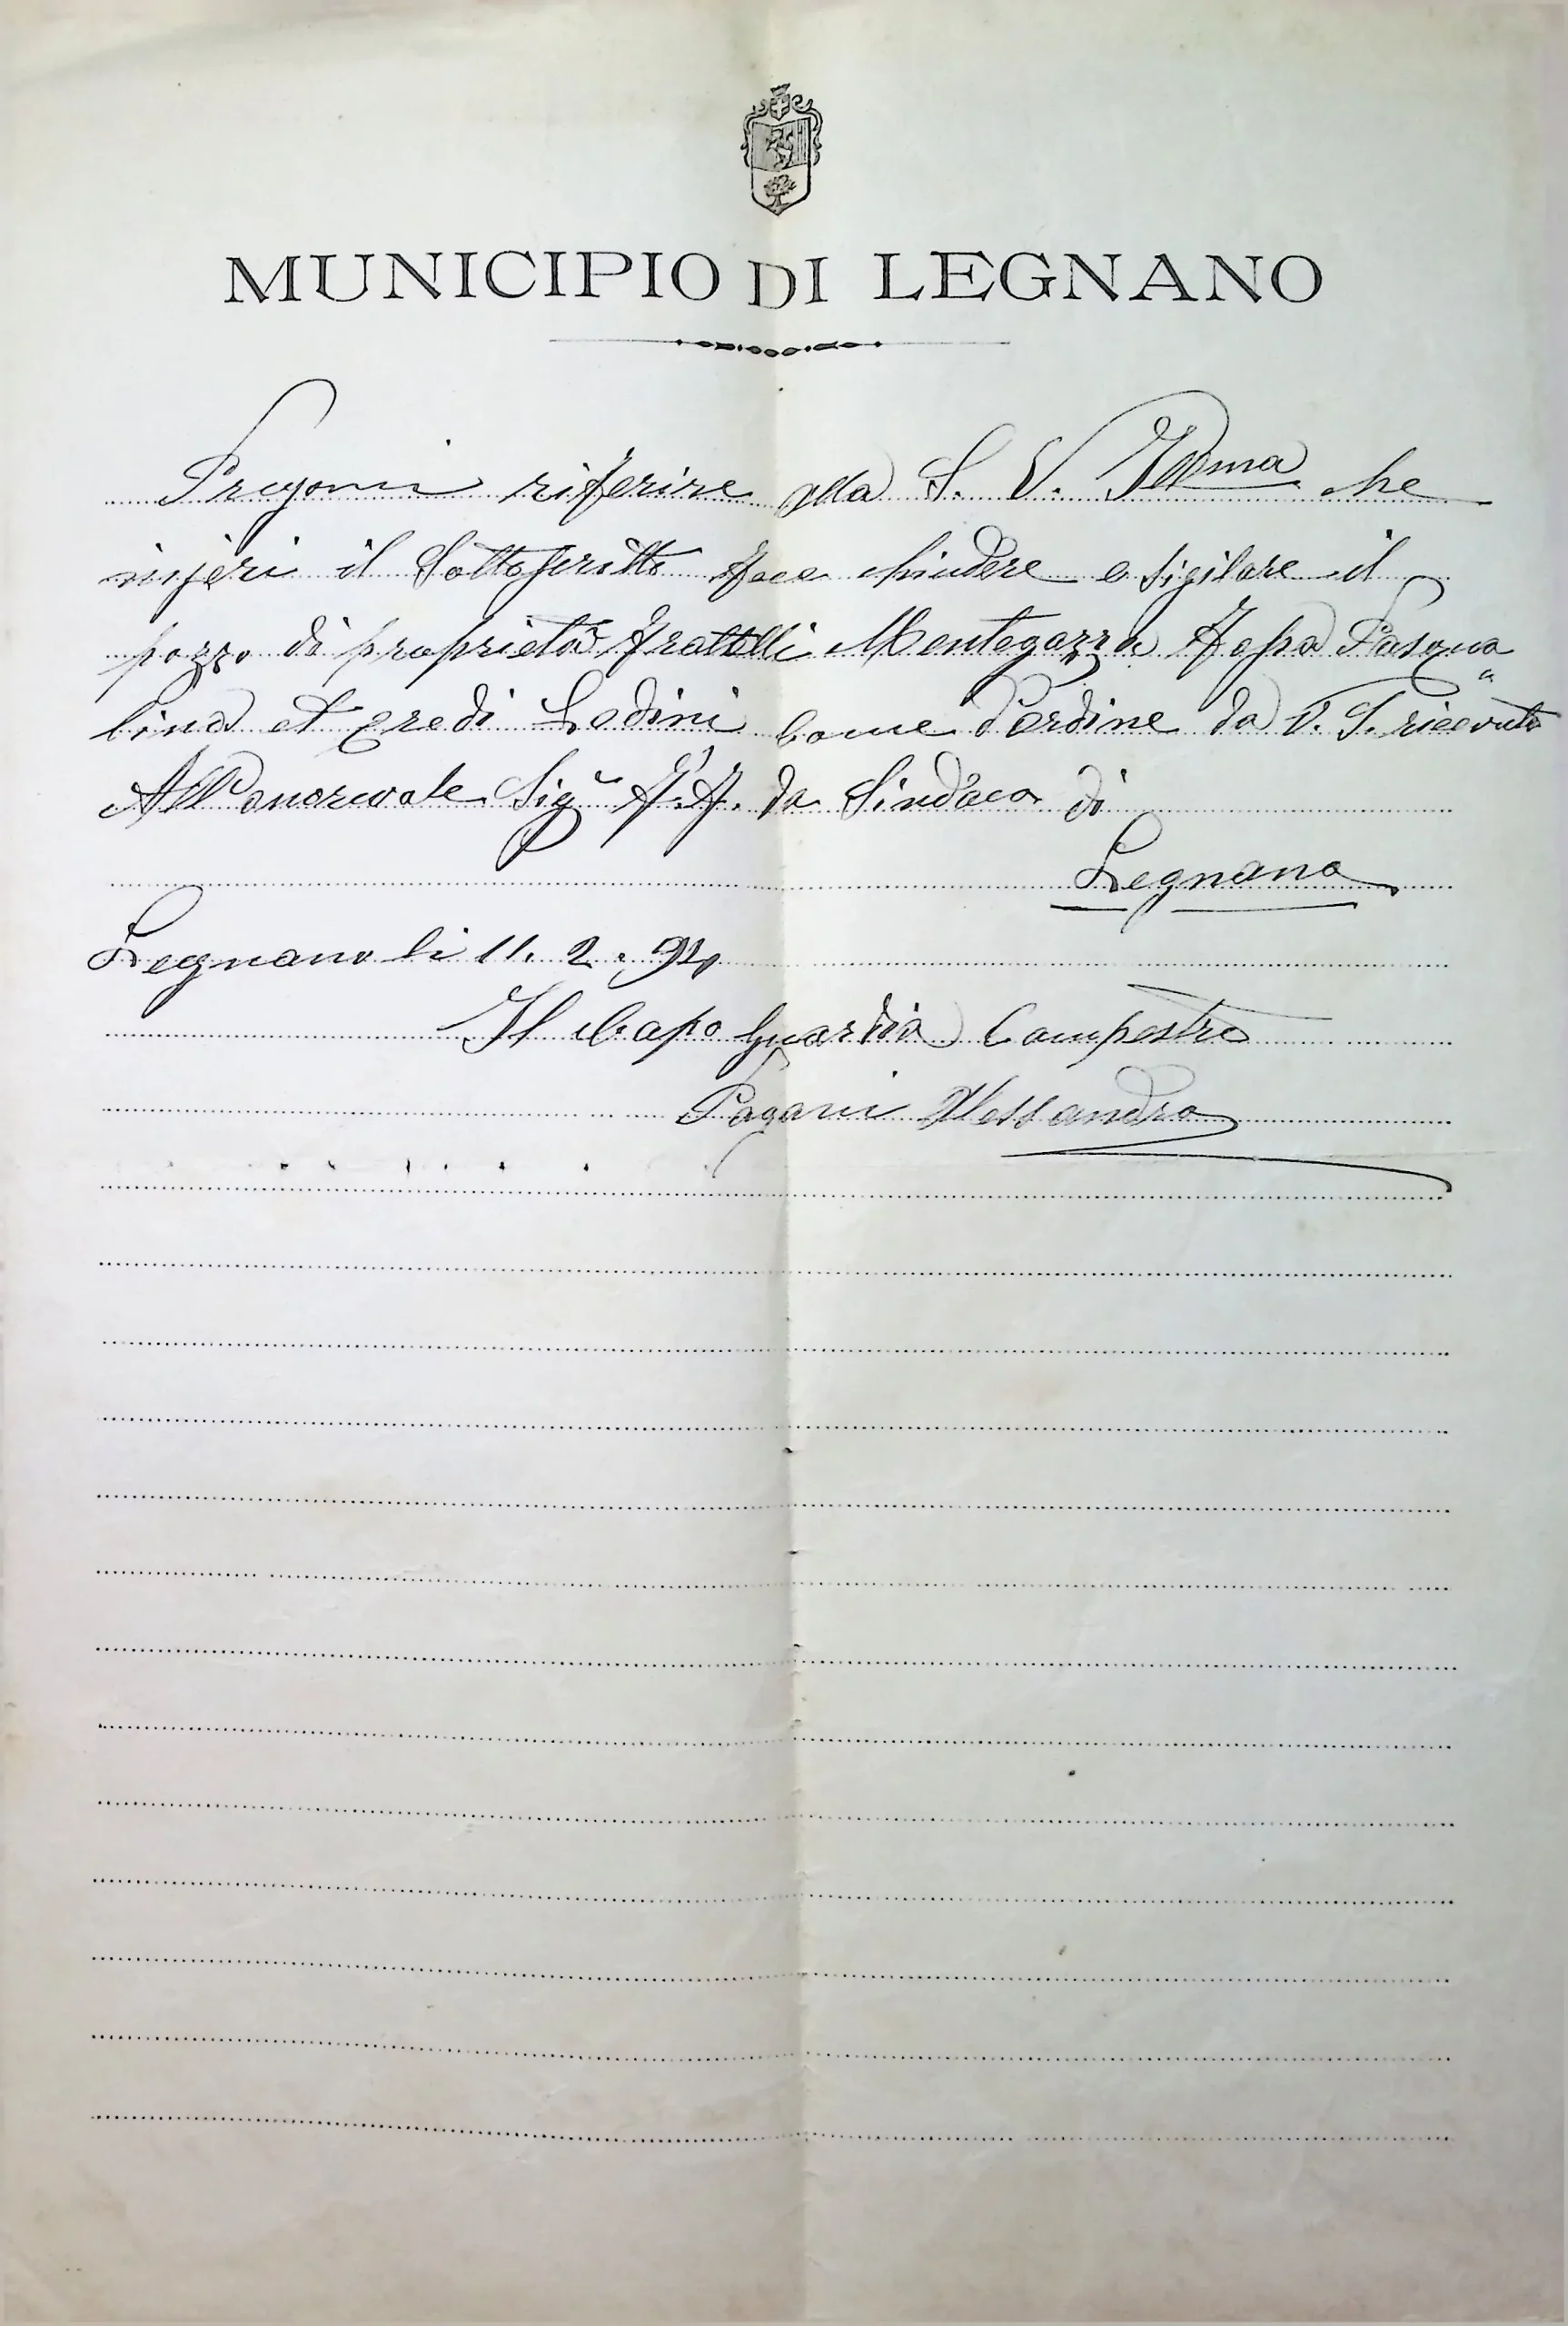 MUNICIPIO DI LEGNANO
Pregomi riferire alla S. V. Illma che
injeri il Sottoscritto fece chiudere e sigilare il
pozzo di proprietà fratelli Mentegazza Pasqua"
lina et Eredi Lodini Come d'ordine da V. S. ricevuto
All'onorevole Sigr F.F. da Sindaco di
Legnano
Legnano li 11. 2. 92
Il Capo Guardia Campestre
Pagani Alessandro